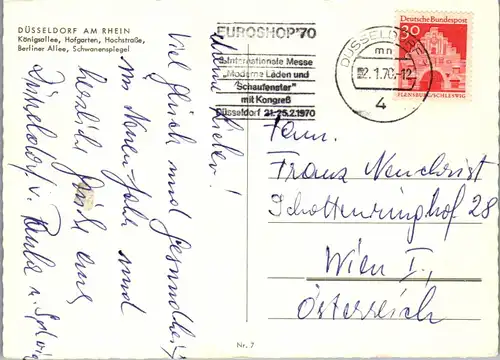 DÜSSELDORF AM RHEIN
Königsallee, Hofgarten, Hochstraße,
Berliner Allee, Schwanenspiegel
EUROSHOP'70
Internationale Messe
„Moderne Läden und
Schaufenster"
mit Kongreß
Düsseldorf 21.-25.2.1970
DÜSSELDORF
mn
2.1.70.-12
4
Deutsche Bundespost
30
FLENSBURG/SCHLESWIG
Meine Lieben!
Viel Glück und Gesundheit
im Neuen Jahr und
herzliche Grüße aus
Düsseldorf v. Paula u.
Fam.
Franz Neuchrist
Schottenringhof 28
Wien I.,
Österreich
Nr. 7